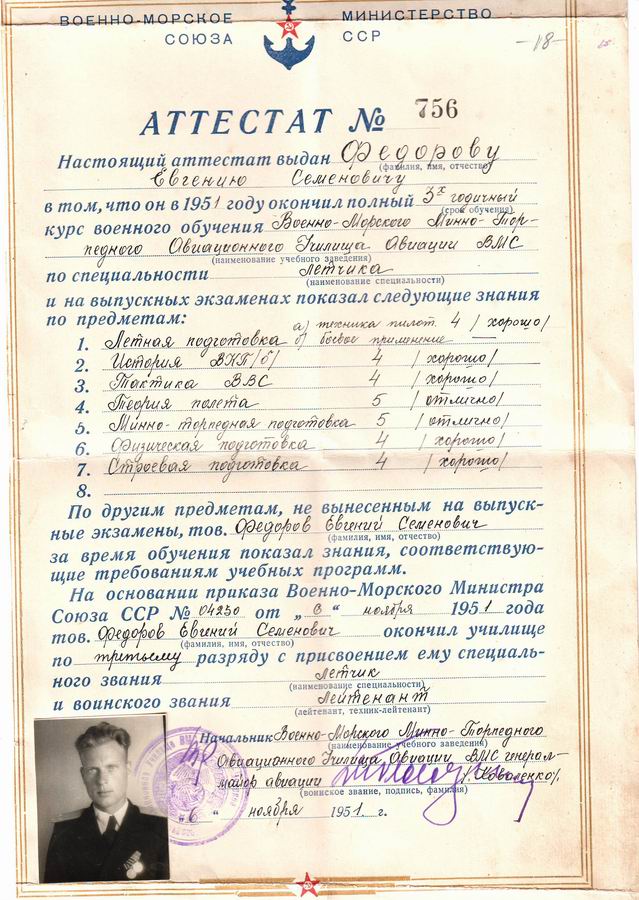 ВОЕННО-МОРСКОЕ МИНИСТЕРСТВО
СОЮЗА ССР
-18-
АТТЕСТАТ № 756
Настоящий аттестат выдан Федорову
(фамилия, имя, отчество)
Евгению Семеновичу
в том, что он в 1951 году окончил полный 3х годичный
(срок обучения)
курс военного обучения Военно-Морского Минно-Тор-
педного Авиационного Училища Авиации ВМС
(наименование учебного заведения)
по специальности летчика
(наименование специальности)
и на выпускных экзаменах показал следующие знания
по предметам:
1. Летная подготовка а) техника пилот. 4 /хорошо/
б) боевое применение —
2. История ВКП/б/ 4 /хорошо/
3. Тактика ВВС 4 /хорошо/
4. Теория полета 5 /отлично/
5. Минно-торпедная подготовка 5 /отлично/
6. Физическая подготовка 4 /хорошо/
7. Строевая подготовка 4 /хорошо/
8.
По другим предметам, не вынесенным на выпуск-
ные экзамены, тов. Федоров Евгений Семенович
(фамилия, имя, отчество)
за время обучения показал знания, соответствую-
щие требованиям учебных программ.
На основании приказа Военно-Морского Министра
Союза ССР № 04230 от „6" ноября 1951 года
тов. Федоров Евгений Семенович окончил училище
(фамилия, имя, отчество)
по третьему разряду с присвоением ему специаль-
ного звания летчик
(наименование специальности)
и воинского звания Лейтенант
(лейтенант, техник-лейтенант)
Начальник Военно-Морского Минно-Торпедного
(наименование учебного заведения)
Авиационного Училища Авиации ВМС генерал-
майор авиации /Коваленко/.
(воинское звание, подпись, фамилия)
„6" ноября 1951 г.